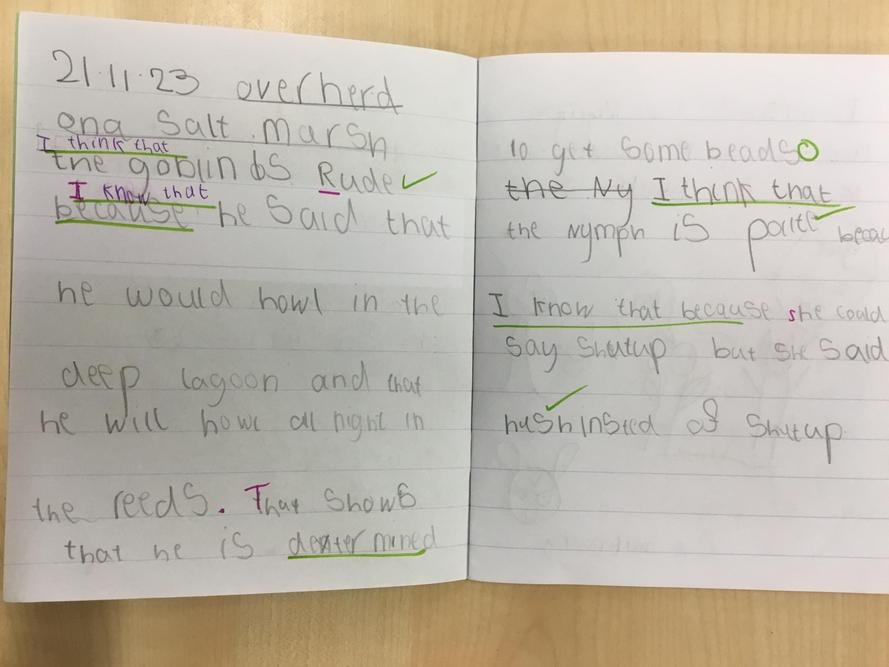 21.11.23 overherd
ona Salt marsh
I think that
the goblin is Rude
I know that
because he Said that
he would howl in the
deep lagoon and that
he will howl all night in
the reeds. That Shows
that he is dextermined
to get Some beads
the Ny I think that
the Nymph is polite becau
I know that because she could
Say Shutup but she Said
hush insted of Shutup